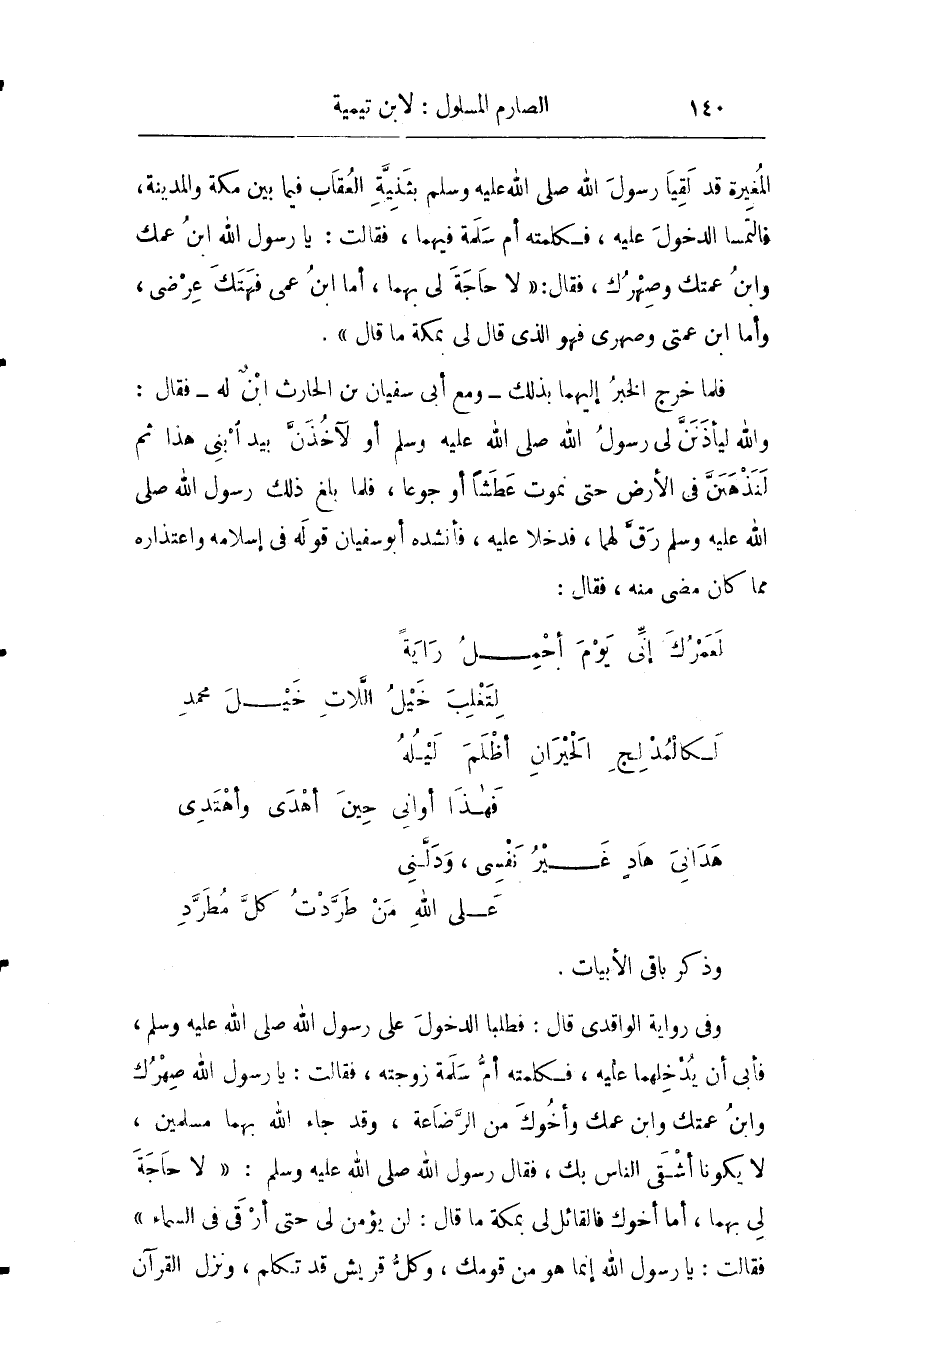 ١٤٠ الصارم المسلول : لابن تيمية
المُغِيرة قد لَقِيَا رسولَ الله صلى الله عليه وسلم بثَنِيَّةِ العُقَاب فيما بين مكة والمدينة،
فالتمسا الدخولَ عليه ، فـكلمته أم سَلَمة فيهما ، فقالت : يا رسول الله ابنُ عمك
وابنُ عمتك وصِهْرُك ، فقال: « لا حَاجَةَ لى بهما ، أما ابنُ عمى فهَتَكَ عِرْضى ،
وأما ابن عمتى وصهرى فهو الذى قال لى بمكة ما قال » .
فلما خرج الخبرُ إليهما بذلك ــ ومع أبى سفيان بن الحارث ابْنٌ له ــ فقال :
والله ليأذَنَنَّ لى رسولُ الله صلى الله عليه وسلم أو لآخُذَنَّ بيد ابْنِى هذا ثم
لَنَذْهَبَنَّ فى الأرض حتى نموت عَطَشًا أو جوعا ، فلما بلغ ذلك رسول الله صلى
الله عليه وسلم رَقَّ لهما ، فدخلا عليه ، فأنشده أبوسفيان قولَه فى إسلامه واعتذاره
مما كان مضى منه ، فقال :
لَعَمْرُكَ إنِّى يَوْمَ أحْمِـــــلُ رَايَةً
لِتَغْلِبَ خَيْلُ اللَّاتِ خَيْـــلَ محمدِ
لَـكالْمُدْلِجِ الْحَيْرَانِ أظْلَمَ لَيْـلُهُ
فَهٰـذَا أوانِى حِينَ أهْدَى وأهْتَدِى
هَدَانِىَ هَادٍ غَـــــيْرُ نَفْسِى ، وَدَلَّـنِى
عَـلى اللهِ مَنْ طَرَّدْتُ كلَّ مُطَرَّدِ
وذكر باقى الأبيات .
وفى رواية الواقدى قال : فطلبا الدخولَ على رسول الله صلى الله عليه وسلم ،
فأبى أن يُدْخِلهما عليه ، فـكلمته أمُّ سَلَمة زوجته ، فقالت : يا رسول الله صِهْرُك
وابنُ عمتك وابن عمك وأخُوكَ من الرَّضَاعة ، وقد جاء الله بهما مسلمين ،
لا يكونا أشْقَى الناس بك ، فقال رسول الله صلى الله عليه وسلم : « لا حَاجَةَ
لِى بهما ، أما أخوك فالقائل لى بمكة ما قال : لن يؤمن لى حتى أرْقَى فى السماء »
فقالت : يا رسول الله إنما هو من قومك ، وكلُّ قريش قد تـكلم ، ونزل القرآن